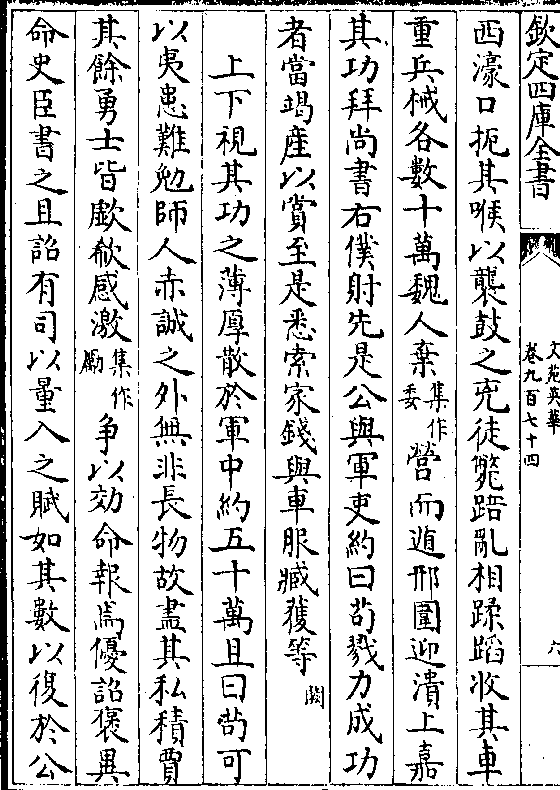 欽定四庫全書
文苑英華
卷九百七十四
六
西濠口扼其喉以襲鼓之兇徒斃踣亂相蹂蹈收其車
重兵械各數十萬魏人棄集作委營而遁邢圍迎潰上嘉
其功拜尚書右僕射先是公與軍吏約曰茍戮力成功
者當竭産以賞至是悉索家錢與車服臧獲等闕
上下視其功之薄厚散於軍中約五十萬且曰茍可
以夷患難勉師人赤誠之外無非長物故盡其私積賈
其餘勇士皆歔欷感激集作勵争以効命報焉優詔褒異
命史臣書之且詔有司以量入之賦如其數以復於公